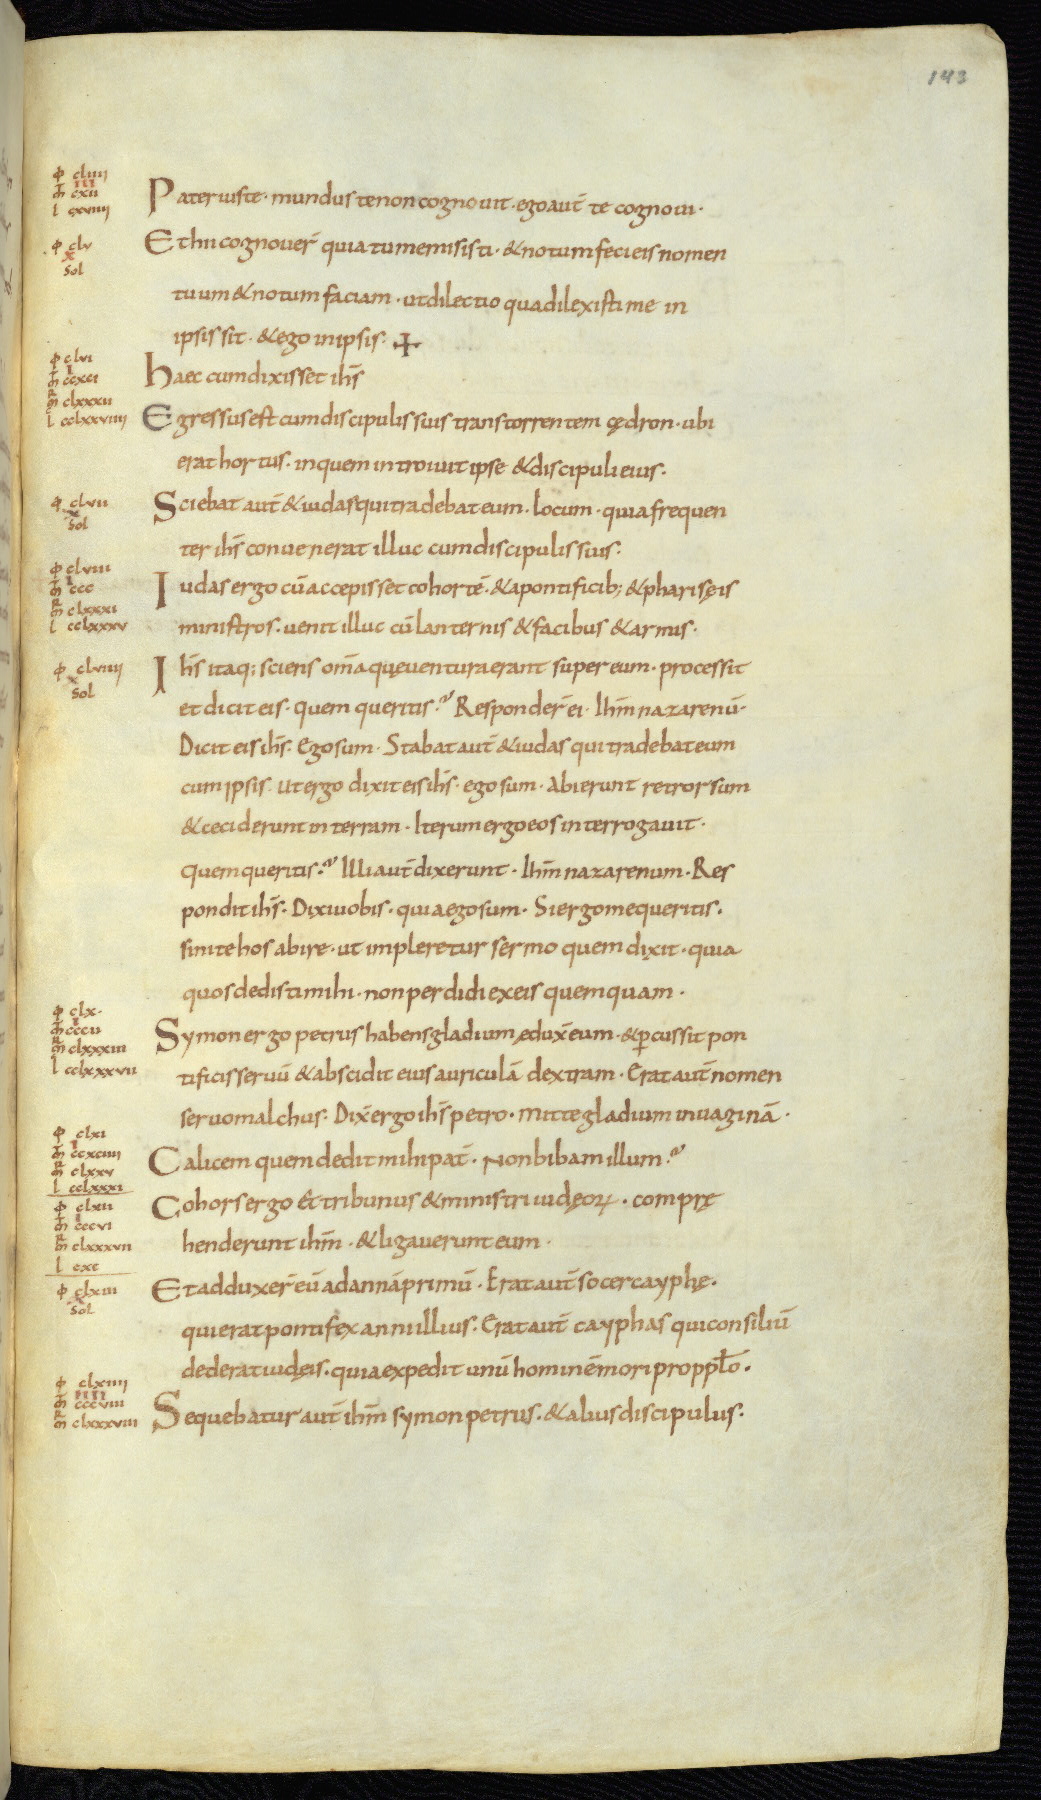 143
ꝕ cliiii
III
m̄ cxii
l cxviiii
Pater iuste · mundus te non cognouit · ego aut̄ te cognoui ·
ꝕ clv
X
Sol
Et hii cognouer̄ quia tu me misisti · & notum feci eis nomen
tuum & notum faciam · ut dilectio qua dilexisti me in
ipsis sit · & ego in ipsis · ✢
ꝕ clvi
I
m̄ ccxci
m̄ clxxxii
l cclxxviiii
Haec cum dixisset ih̄s
Egressus est cum discipulis suis trans torrentem cędron · ubi
erat hortus · in quem introiuit ipse & discipuli eius ·
ꝕ clvii
x
Sol
Sciebat aut̄ & iudas qui tradebat eum · locum · quia frequen
ter ih̄s conuenerat illuc cum discipulis suis :
ꝕ clviii
I
m̄ ccc
m̄ clxxxi
l cclxxxv
Iudas ergo cū accepisset cohortē · & a pontificib; & pharisęis
ministros · uenit illuc cū lanternis & facibus & armis ·
ꝕ clviiii
x
Sol
Ih̄s itaq; sciens om̄a quę uentura erant super eum · processit
et dicit eis · quem queritis ·? Responder̄ ei · Ihm̄ nazarenū ·
Dicit eis ih̄s · Ego sum · Stabat aut̄ & iudas qui tradebat eum
cum ipsis · ut ergo dixit eis ih̄s · ego sum · Abierunt retrorsum
& ceciderunt in terram · Iterum ergo eos interrogauit ·
quem queritis ·? Illi aut̄ dixerunt · Ihm̄ nazarenum · Res
pondit ih̄s · Dixi uobis · quia ego sum · Si ergo me queritis ·
sinite hos abire · ut impleretur sermo quem dixit · quia
quos dedisti mihi · non perdidi ex eis quemquam ·
ꝕ clx ·
I
m̄ cccii
m̄ clxxxiii
l cclxxxvii
Symon ergo petrus habens gladium ędux̄ eum · & ꝑcussit pon
tificis seruū & abscidit eius auriculā dextram · Erat aut̄ nomen
seruo malchus : Dix̄ ergo ih̄s petro · mitte gladium in uaginā ·
ꝕ clxi
I
m̄ ccxciiii
m̄ clxxv
l cclxxxi
Calicem quem dedit mihi pat̄ · Non bibam illum ·?
ꝕ clxii
I
m̄ cccvi
m̄ clxxxvii
l cxc
Cohors ergo Et tribunus & ministri iudęoꝝ · comprę
henderunt ihm̄ · & ligauerunt eum ·
ꝕ clxiii
x
Sol
Et adduxer̄ eū ad annā primū · Erat aut̄ socer cayphę ·
qui erat pontifex anni illius · Erat aut̄ cayphas qui consiliū
dederat iudęis · quia expedit unū hominē mori pro pp̄lo ·
ꝕ clxiiii
IIII
m̄ cccviii
m̄ clxxxviii
Sequebatur aut̄ ihm̄ symon petrus · & alius discipulus ·